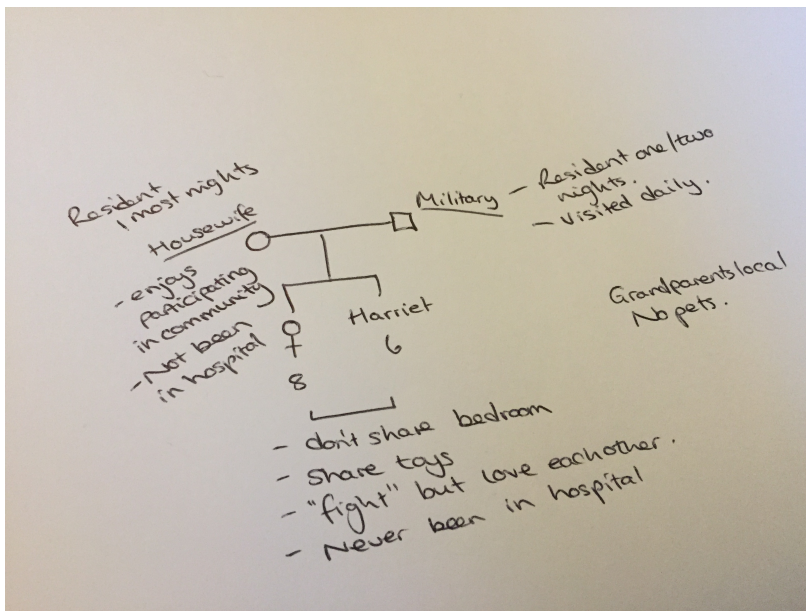 Resident
, most nights
Housewife
- enjoys
participating
in community
- Not been
in hospital
Military
- Resident one/two
nights.
- Visited daily.
Grandparents local
No pets.
8
Harriet
6
- don't share bedroom
- Share toys
- "fight" but love eachother.
- Never been in hospital